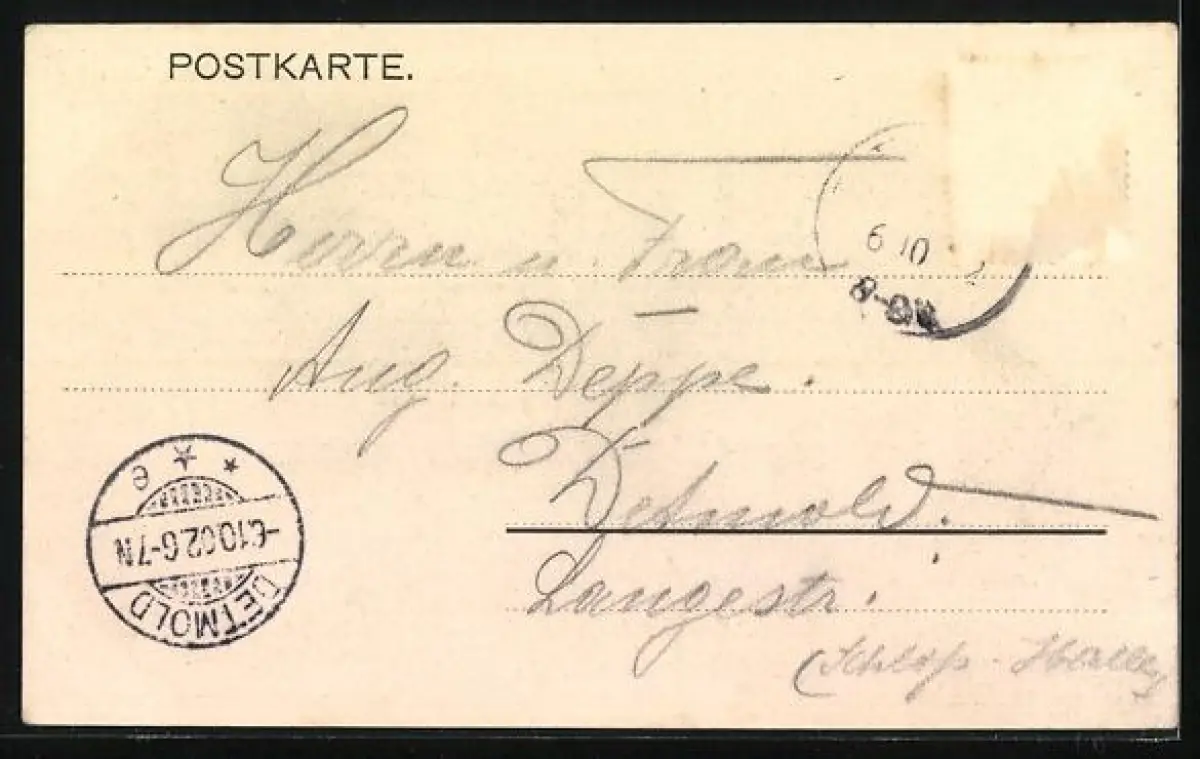 POSTKARTE.
Herrn u. Frau
Aug. Deppe.
Detmold.
Langestr.
(Schloß-
6 10
8-9N
e
-6.10.02.6-7N
DETMOLD